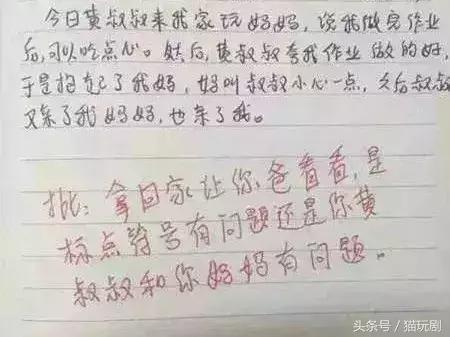 今日黄叔叔来我家玩妈妈，说我做完作业
后，可以吃点心。然后，黄叔叔夸我作业做的好，
于是抱起了我妈，妈叫叔叔小心一点，之后叔叔
又亲了我妈妈，也亲了我。
批：拿回家让你爸看看，是
标点符号有问题还是你黄
叔叔和你妈妈有问题。
头条号 / 猫玩剧